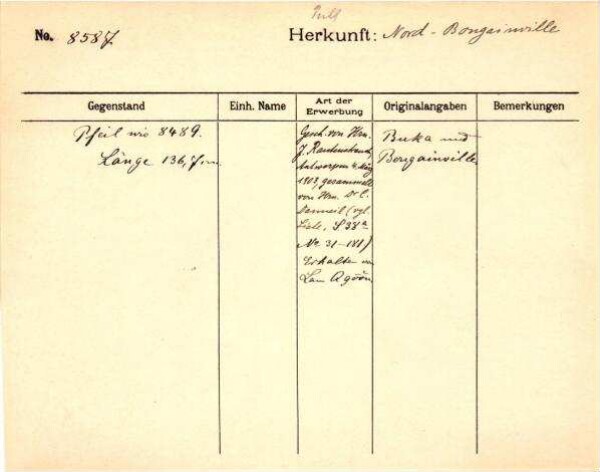 No. 8587
Herkunft: Nord-Bougainville
Gegenstand
Einh. Name
Art der Erwerbung
Originalangaben
Bemerkungen
Pfeil wie 8489.
Länge 136,7 cm.
Gesch. von Hrn.
J. Rautenstrauch,
Antwerpen 4. März
1903, gesammelt
von Hrn. Dr C.
Danneil (vgl.
Liste, S 38a
No. 31-181)
Erhalten von
Lau
Buka und
Bougainville